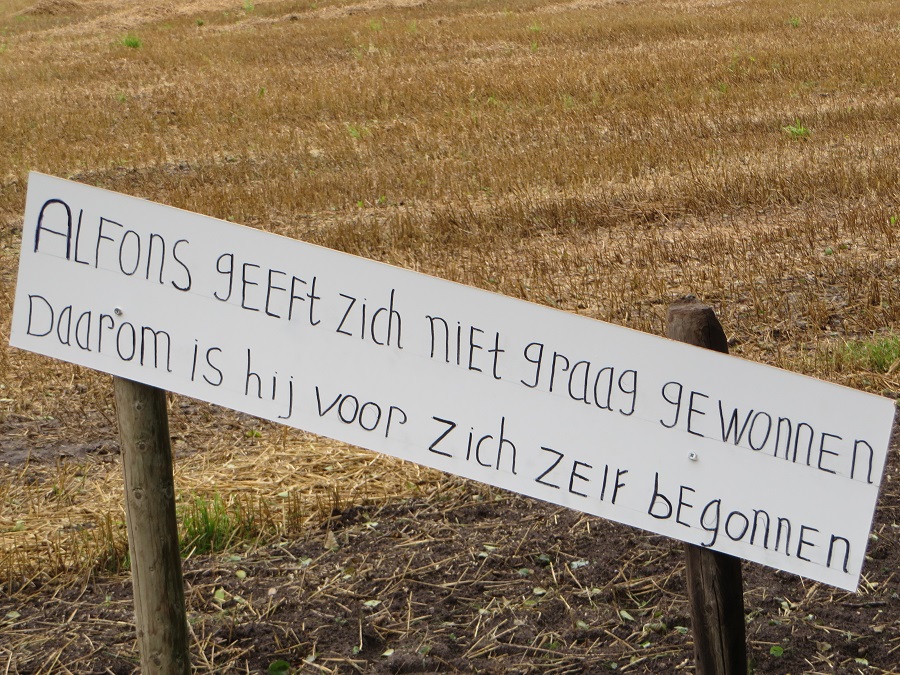 ALFONS gEEFt zich niEt graag gEWonnEn
Daarom is hij voor zich zElf bEgonnEn